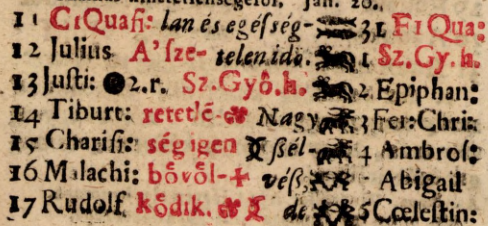 11 C1Quasi: lan és egésség- 31 F1Qua:
12 Julius A’ sze- telen idő. 1 Sz.Gy.h.
13 Justi: 2.r. Sz.Gyô.h. 2 Epiphan:
14 Tiburt: retetlē- Nagy 3 Fer:Chri:
15 Charisi: ség igen ßél- 4 Ambros:
16 Malachi: bővől- véß, Abigail
17 Rudolf kődik. de 5 Cœlestin: